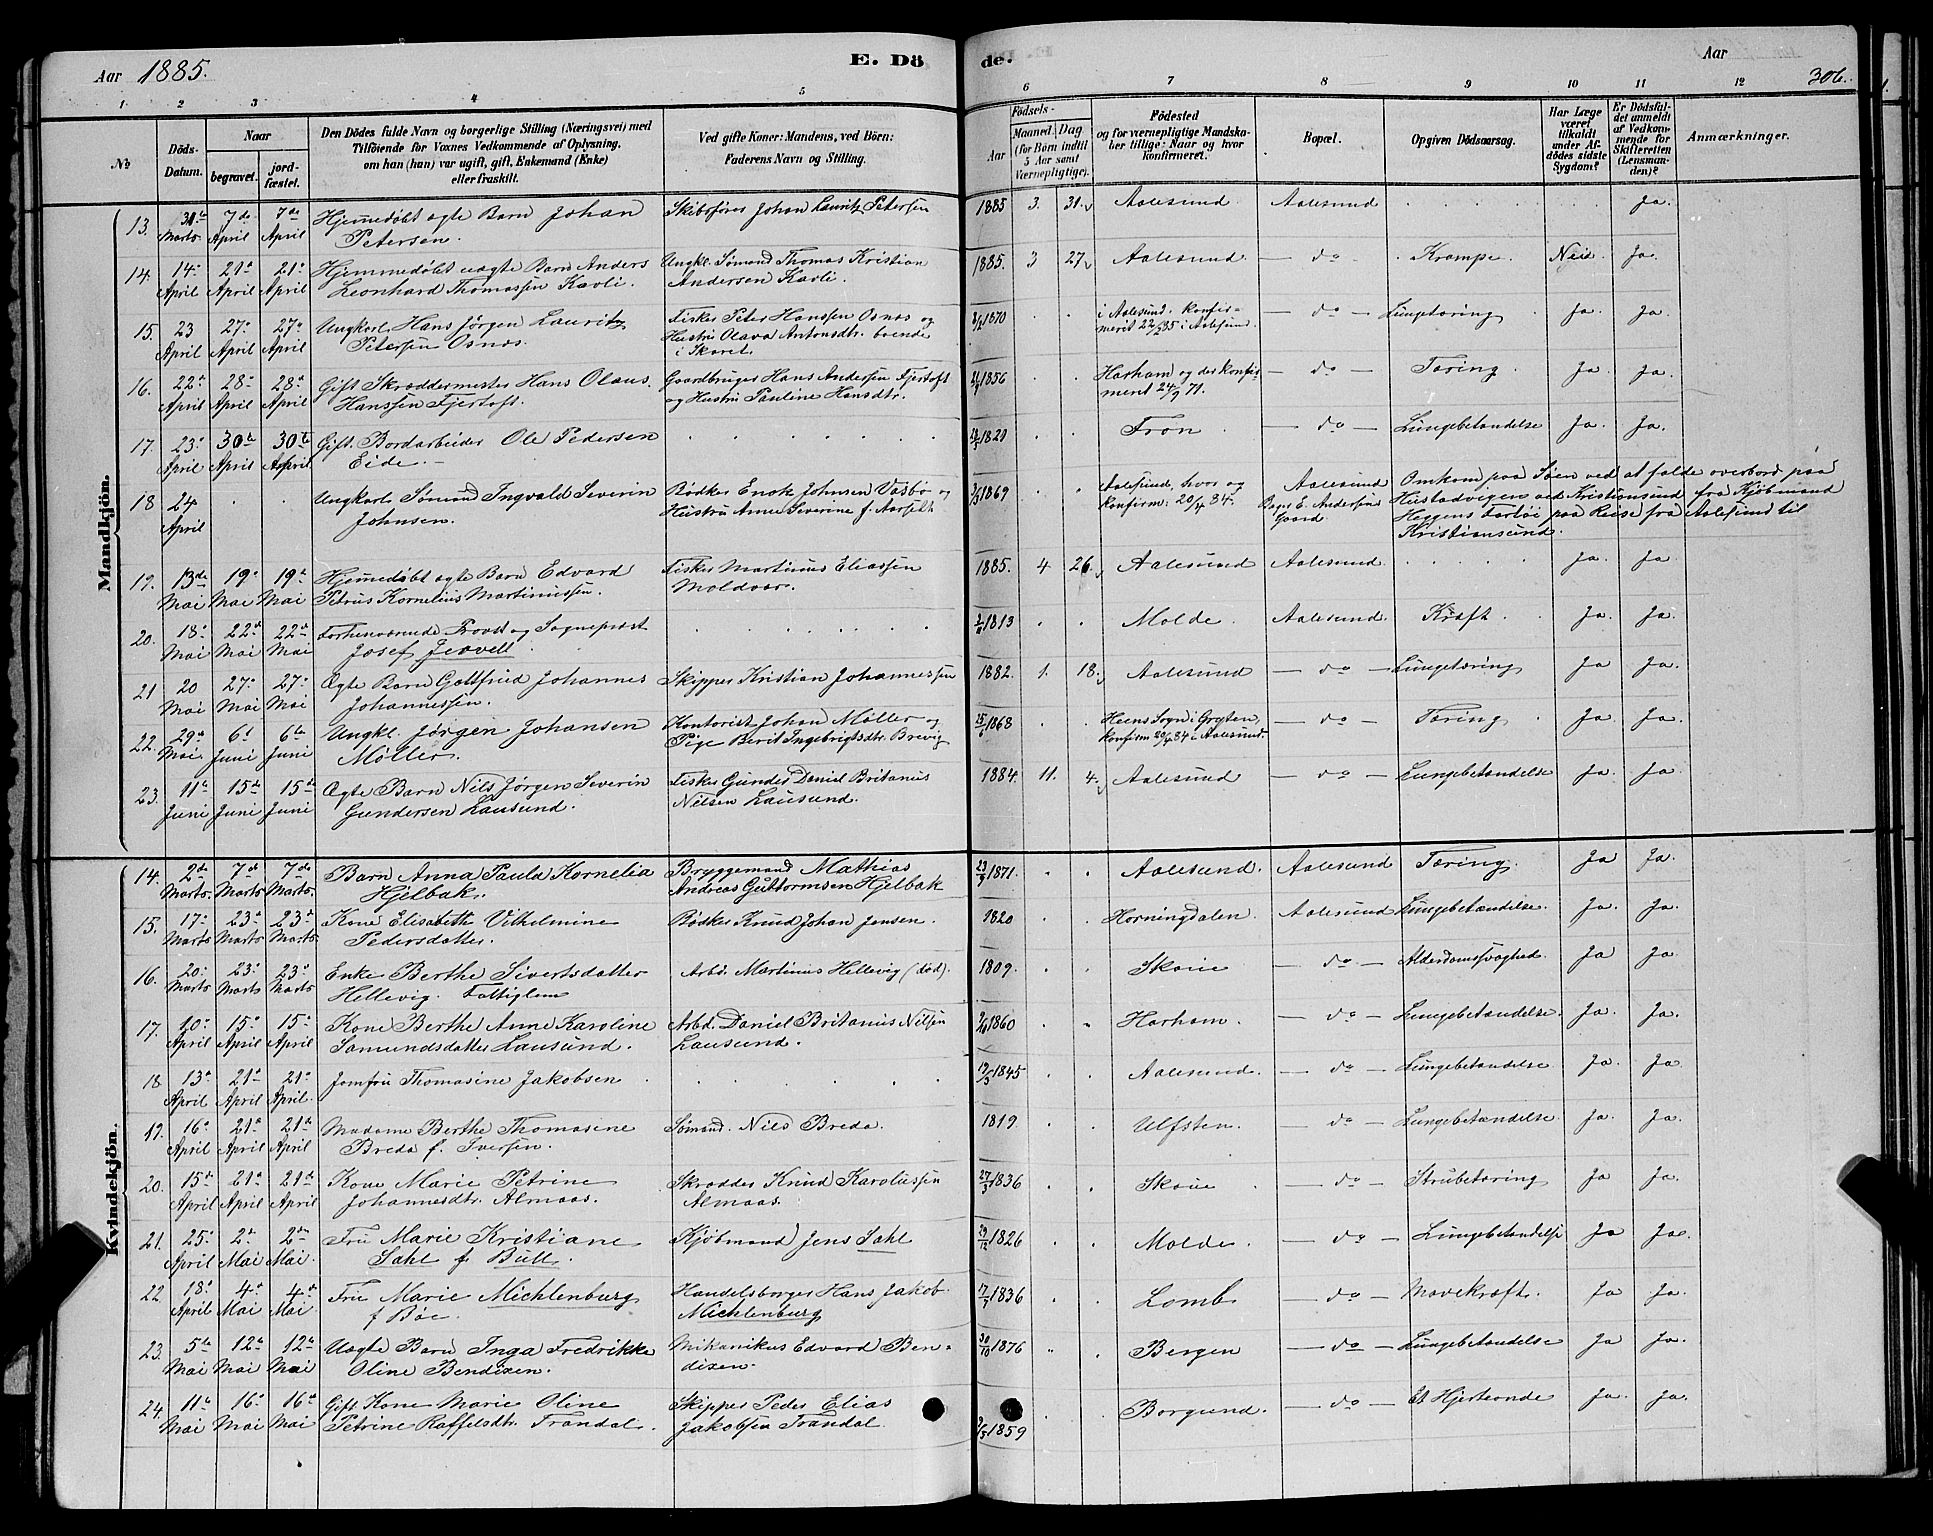 Aar 1885.
E. Dö
de.
Aar
306.
1. 2 3 4 5
6 7 8 9 10 11 12
№
Döds-
Datum.
Naar
begravet.
jord-
fæstet.
Den Dödes fulde Navn og borgerlige Stilling (Næringsvei) med
Tilföiende for Voxnes Vedkommende af Oplysning,
om han (hun) var ugift, gift, Enkemand (Enke)
eller fraskilt.
Ved gifte Koner: Mandens, ved Börn:
Faderens Navn og Stilling.
Födsels-
Aar
Maaned. Dag
(for Børn indtil
5 Aar samt
Værnepligtige).
Födested
og for værnepligtige Mandska-
ber tillige: Naar og hvor
konfirmeret.
Bopæl.
Opgiven Dödsaarsag.
Har Læge
været
tilkaldt
under Af-
dödes sidste
Sygdom?
Er Dödsfal-
det anmeldt
af Vedkom-
mende for
Skifteretten
(Lensman-
den)?
Anmærkninger.
Mandkjön.
13. 31te Marts 7de April 7de April Hjemmedöbt ægte Barn Johan Skibsfører Johan Lauritz Petersen 1885 3 31. Aalesund Aalesund Ja.
Petersen.
14. 14. April 21. April 21. April Hjemmedöbt uægte Barn Anders Ungkl. Sømand Thomas Kristian 1885. 3 27. Aalesund — do — Krampe. Nei Ja.
Leonhard Thomassen Kavli. Andersen Kavli.
15. 23 April 27. April 27. April Ungkarl Hans Jørgen Lauritz Fisker Peter Hanssen Osnæs og 1870 i Aalesund, konfir- — do — Lungetæring Ja. Ja.
Petersen Osnæs. Hustru Olava Antonsdtr. boende meret i Aalesund.
i Skaret.
16. 22. April 28. April 28. April Gift Skræddermester Hans Olaus Gaardbruger Hans Andersen Fjertoft 1856 Harham og der konfir- — do — Tæring. Ja. Ja.
Hanssen Fjertoft. og Hustru Pauline Hansdtr. meret 24/9 71.
17. 23. April 30te April 30te April Gift. Bordarbeider Ole Pedersen Fron — do — Lungebetændelse Ja. Ja.
Eide.
18 24 April Ungkarl Sømand Ingvald Severin Bødker Enok Johnsen Vasbø og 1869 Aalesund, hvor og Aalesund Omkom paa Søen ved at falde overbord paa
Johnsen. Hustru Anne Severine f. Aarseth konfirm. 20/4 84. Bager E. Andersens Hustadvigen ved Kristiansund fra Kjøbmand
Gaard. Heggens Fartøi paa Reise fra Aalesund til
Kristiansund.
19. 13de Mai 19. Mai 19. Mai Hjemmedöbt ægte Barn Edvard Fisker Martinus Eliassen 1885. 4 26. Aalesund Aalesund. Ja. Ja
Petrus Kornelius Martinussen. Moldvær.
20. 18. Mai 22. Mai 22. Mai Forhenværende Provst og Sognepræst 1813 Molde. Aalesund. Kræft Ja. Ja.
Josef Jervell
21 20 Mai 27. Mai 27. Mai Ægte Barn Gottfried Johannes Skipper Kristian Johannessen 1882. 1. 18. Aalesund — do — Lungetæring Ja Ja.
Johannessen.
22. 29. Mai 6. Juni 6te Juni Ungkl. Jørgen Johansen Kontorist Johan Møller og 1868 Heens Sogn i Gryten, — do — Tæring Ja. Ja.
Møller. Pige Berit Ingebrigtsdtr. Brevig konfirm 20/4 84 i Aalesund.
23. 11. Juni 15de Juni 15de Juni Ægte Barn Nils Jørgen Severin Fisker Gunder Daniel Britanus 1884. 11. 4. Aalesund — do — Lungebetændelse Ja. Ja
Gundersen Lausund. Nilsen Lausund.
Kvindekjön.
14. 2de Marts 7de Marts 7de Marts Barn Anna Paula Kornelia Bryggemand Mathias 1871. Aalesund. Aalesund Tæring. Ja Ja.
Hjelbak. Andreas Guttormsen Hjelbak
15. 17. Marts 23. Marts 23. Marts Kone Elisabethe Vilhelmine Bødker Knud Johan Jensen. 1820 Horningdalen. Aalesund Lungebetændelse. Ja. Ja.
Pedersdatter.
16 20. Marts 23. Marts 23. Marts Enke Berthe Sivertsdatter Arbd. Martinus Hellevig (død). 1809. Skoue — do — Alderdomssvaghed. Ja Ja.
Hellevig. Fattiglem
17. 10. April 15. April 15. April Kone Berthe Anne Karoline Arbd. Daniel Britanus Nilsen 1860 Harham. — do — Lungebetændelse. Ja. Ja.
Samundsdatter Lausund. Lausund.
18 13. April 21. April 21. April. Jomfru Thomasine Jakobsen 1845 Aalesund. — do — Lungebetændelse. Ja. Ja
19. 16. April 21. April 21. April Madame Berthe Thomasine Sømand. Nils Breda. 1819 Ulfsten. — do — Lungebetændelse. Ja. Ja.
Breda f. Iversen.
20. 15. April 21. April 21. April Kone Marie Petrine Skrædder Knud Karolussen 27/3 1836 Skoue — do — Strubetæring Ja Ja.
Johannesdtr. Almaas. Almaas.
21. 25. April 2. Mai 2den Mai. Fru Marie Kristiane Kjøbmand Jens Dahl 29/12 1826 Molde. — do — Lungebetændelse Ja Ja.
Dahl f. Bull.
22 18. April 4. Mai 4. Mai Fru Marie Michlenburg Handelsborger Hans Jakob 1836 Lomb — do — Mavekræft. Ja Ja.
f Bøe. Michlenburg
23. 5te Mai 12. Mai 12. Mai Uægte Barn Inga Fredrikke Mikanikus Edvard Ben- 30/10 1876 Bergen — do — Lungebetændelse Ja Ja.
Oline Bendixen. dixen.
24. 11. Mai 16. Mai 16. Mai Gift Kone Marie Oline Skipper Peder Elias 1859 Borgund. — do — Et Hjerteonde Ja. Ja.
Petrine Raffelsdtr. Trandal. Jakobsen Trandal